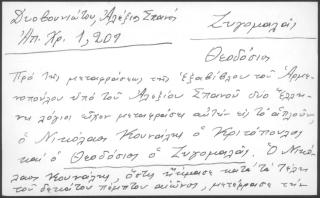 Δυοβουνιώτου, Ἀλέξιος Σπανὸς
Ζυγομαλᾶς
Ἀπ. Χρ. 1, 209
Θεοδόσιος
Πρὸ τῆς μεταφράσεως τῆς Ἑξαβίβλου τοῦ Ἁρμε-
νοπούλου ὑπὸ τοῦ Ἀλεξίου Σπανοῦ δύο Ἕλλη-
νες λόγιοι εἶχον μεταφράσει αὐτὴν εἰς τὸ ἁπλοῦν,
ὁ Νικόλαος Κουνάλης ὁ Κριτόπουλος
καὶ ὁ Θεοδόσιος ὁ Ζυγομαλᾶς. Ὁ Νικό-
λαος Κουνάλης, ὅστις ἤκμασε κατὰ τὰ τέλη
τοῦ δεκάτου πέμπτου αἰῶνος, μετέφρασε τὴν